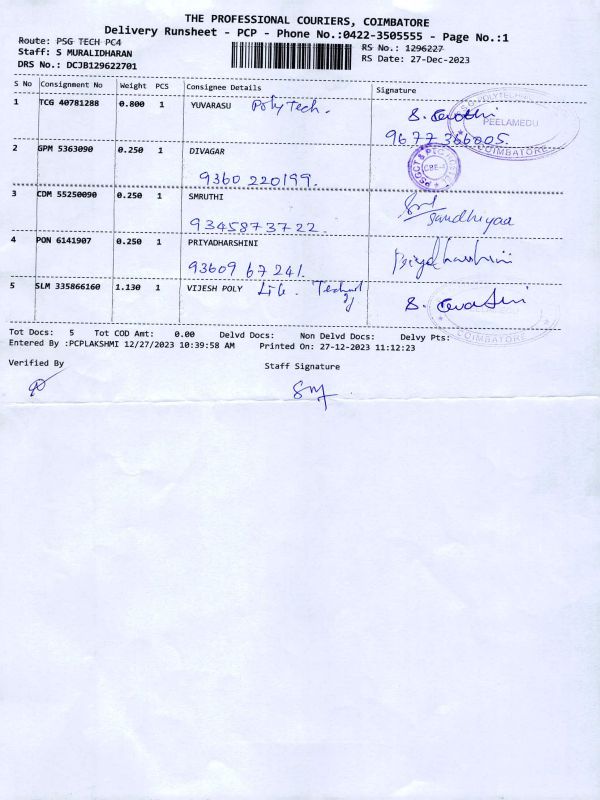 THE PROFESSIONAL COURIERS, COIMBATORE
Delivery Runsheet - PCP - Phone No.:0422-3505555 - Page No.:1
Route: PSG TECH PC4
RS No.: 1296227
Staff: S MURALIDHARAN
RS Date: 27-Dec-2023
DRS No.: DCJB129622701
S No Consignment No Weight PCS Consignee Details Signature
1 TCG 40781288 0.800 1 YUVARASU Poly Tech.
9677 366005.
PEELAMEDU
COIMBATORE
2 GPM 5363090 0.250 1 DIVAGAR
9360 220199.
CBE-4
3 CDM 55250090 0.250 1 SMRUTHI
9345873722. Sandhiyaa
4 PON 6141907 0.250 1 PRIYADHARSHINI Priyadharshini
93609 67 241.
5 SLM 335866160 1.130 1 VIJESH POLY
COIMBATORE
Tot Docs: 5 Tot COD Amt: 0.00 Delvd Docs: Non Delvd Docs: Delvy Pts:
Entered By :PCPLAKSHMI 12/27/2023 10:39:58 AM Printed On: 27-12-2023 11:12:23
Verified By
Staff Signature